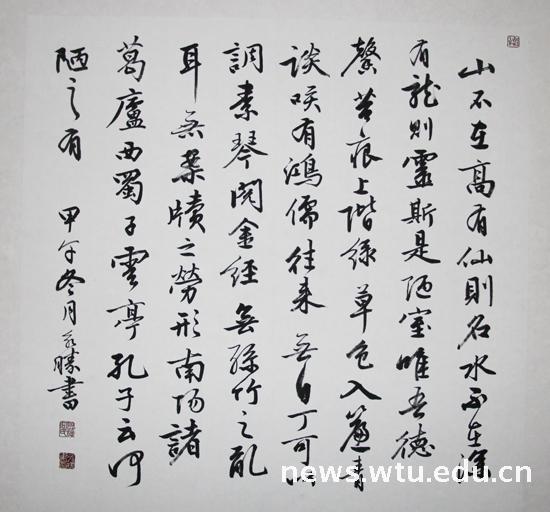 山不在高有仙則名水不在深
有龍則靈斯是陋室唯吾德
馨苔痕上階綠草色入簾青
談咲有鴻儒往來無白丁可以
調素琴閱金經無絲竹之亂
耳無案牘之勞形南陽諸
葛廬西蜀子雲亭孔子云何
陋之有 甲午冬月永勝書
news.wtu.edu.cn